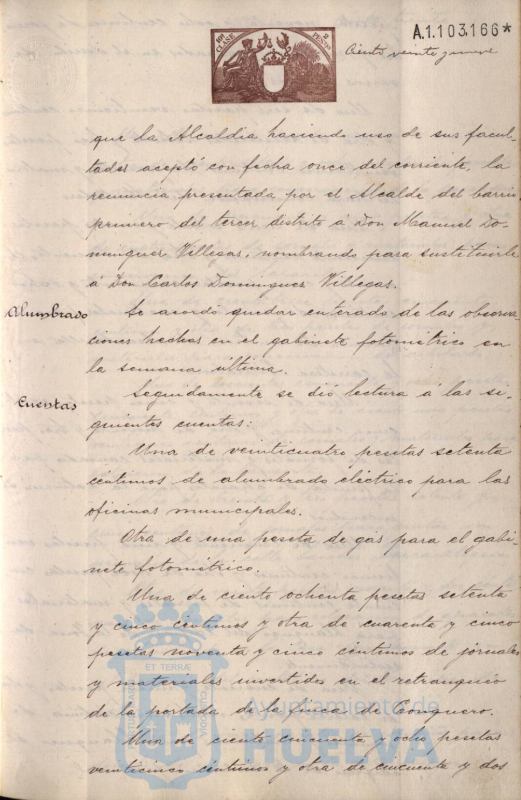 10ª CLASE 2 PESETAS
A.1.103.166*
Ciento veinte y nueve
que la Alcaldia haciendo uso de sus facul-
tades aceptó con fecha once del corriente, la
renuncia presentada por el Alcalde del barrio
primero del tercer distrito á Don Manuel Do-
minguez Villegas, nombrando para sustituirle
á Don Carlos Dominguez Villegas.
Alumbrado
Se acordó quedar enterado de las observa-
ciones hechas en el gabinete fotométrico en
la semana última.
Cuentas
Seguidamente se dió lectura á las si-
guientes cuentas:
Una de veinticuatro pesetas setenta
céntimos de alumbrado eléctrico para las
oficinas municipales.
Otra de una peseta de gas para el gabi-
nete fotométrico.
Una de ciento ochenta pesetas setenta
y cinco céntimos y otra de cuarenta y cinco
pesetas noventa y cinco céntimos de jornales
y materiales invertidos en el retranqueo
de la portada de la finca de Conquero.
Una de ciento cincuenta y ocho pesetas
veinticinco céntimos y otra de cincuenta y dos
ET TERRÆ
Ayuntamiento de
HUELVA